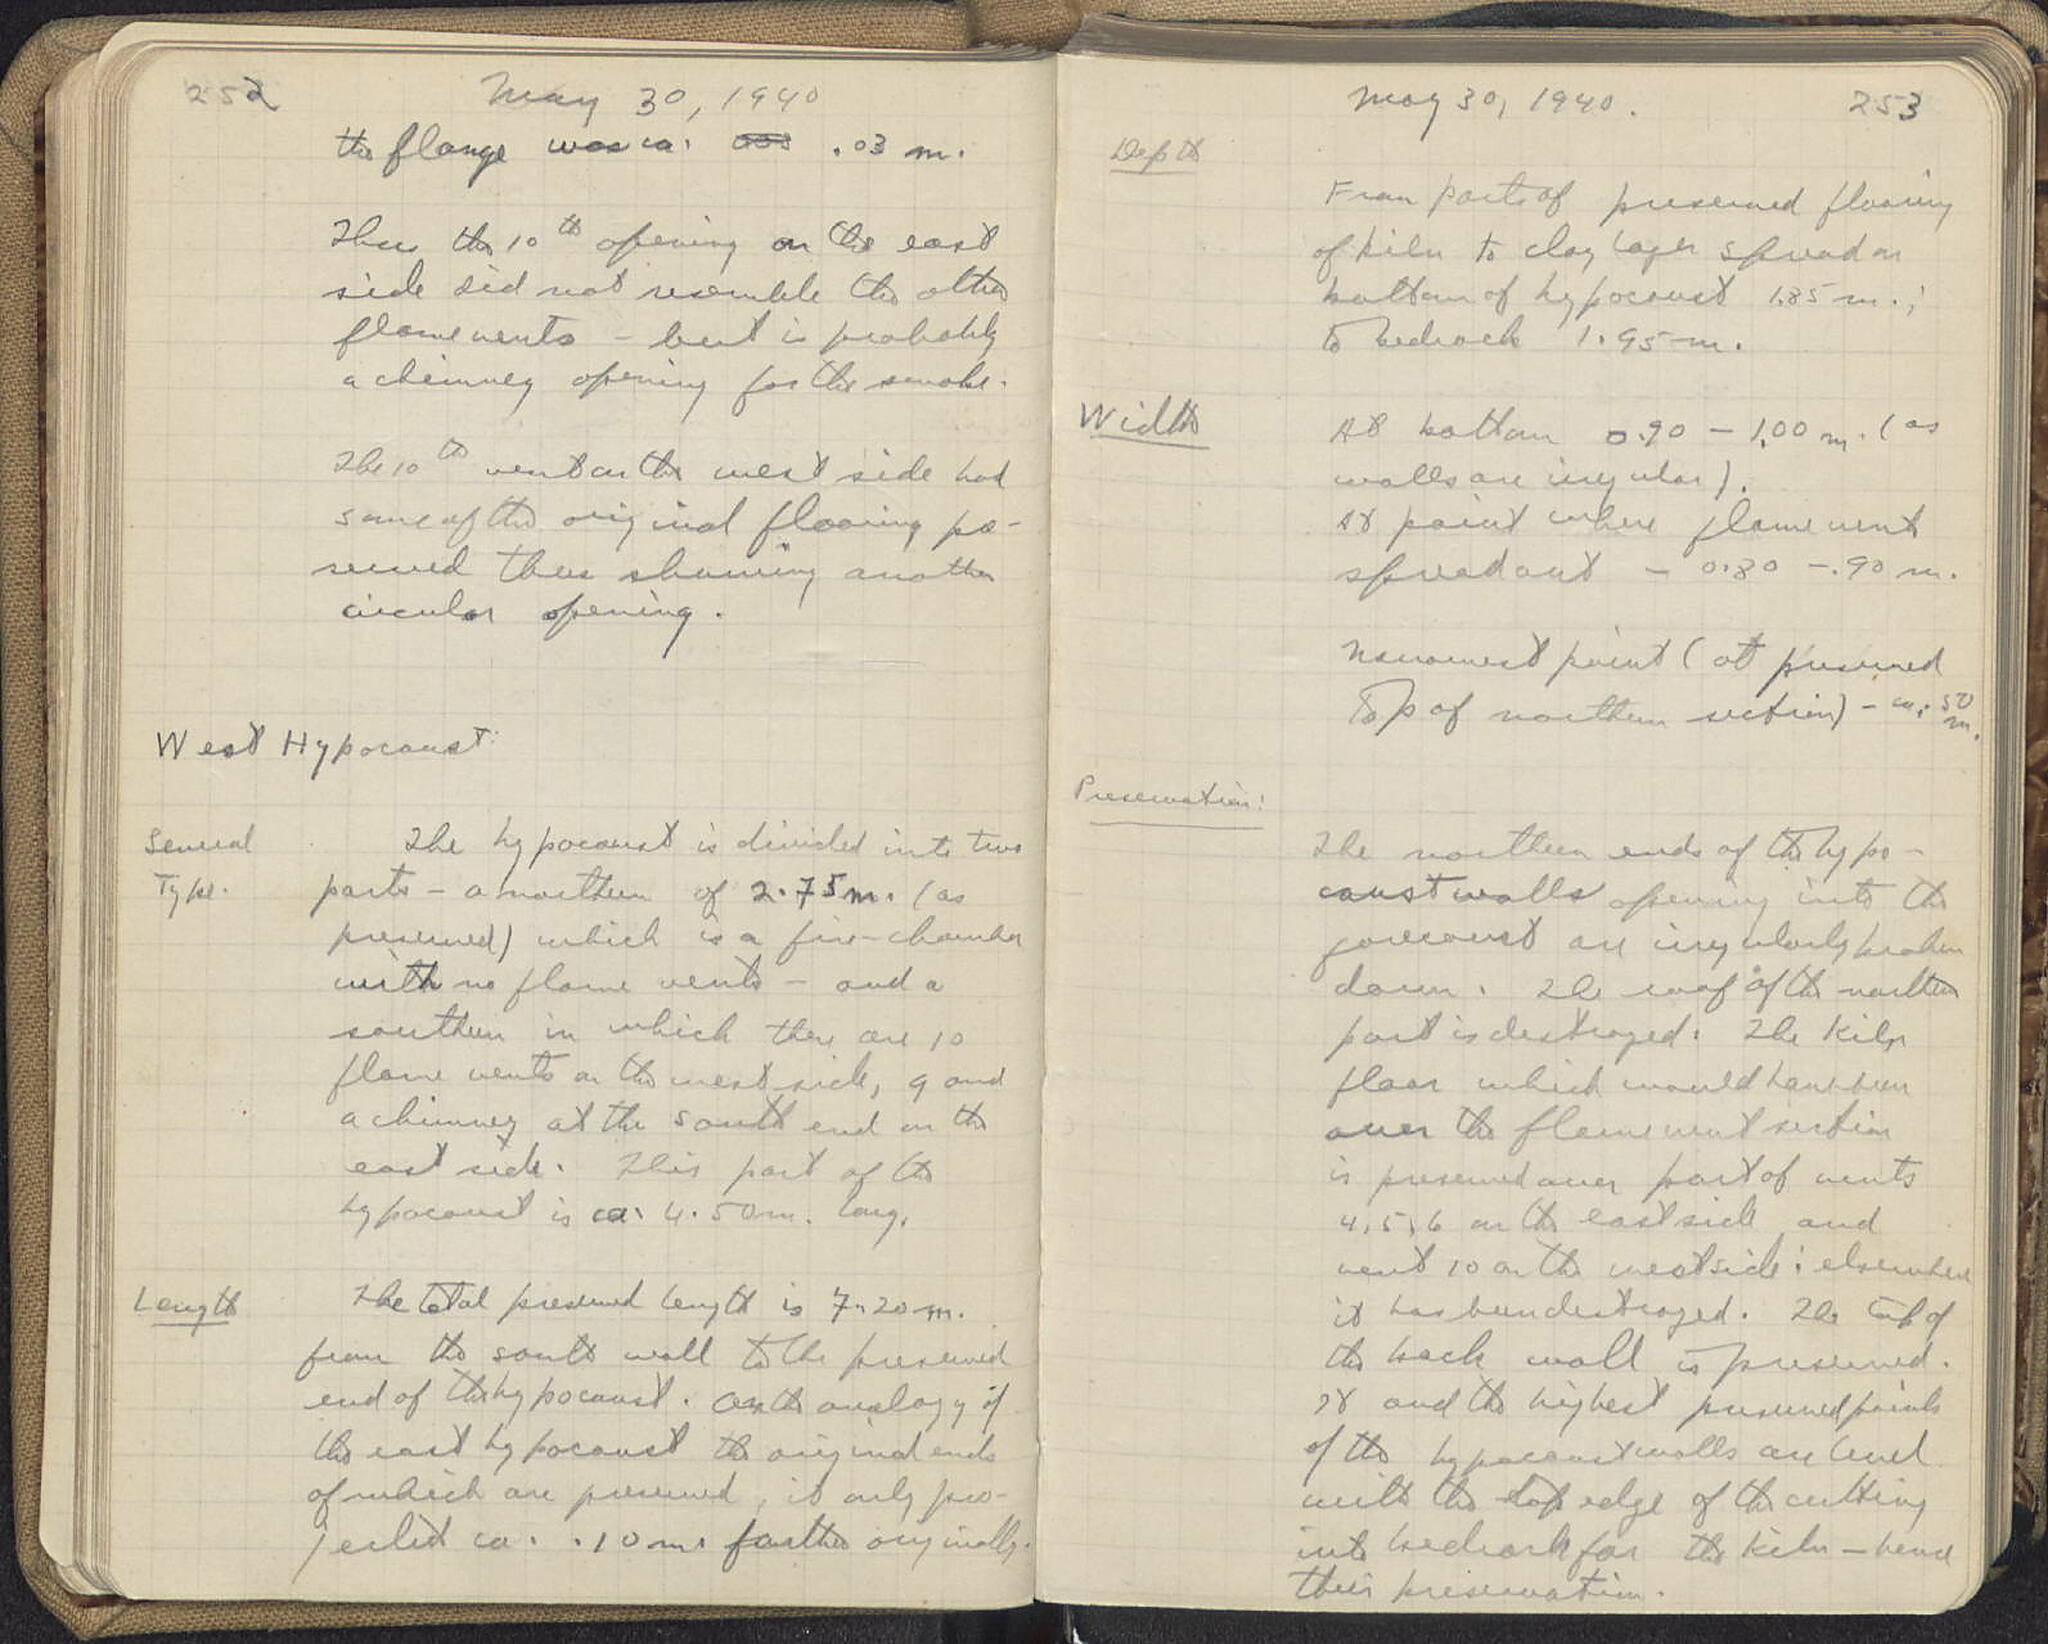 252
May 30, 1940
the flange was ca. .03 m.
Thus the 10th opening on the east
side did not resemble the other
flame vents - but is probably
a chimney opening for the smoke.
The 10th vent on the west side had
some of the original flooring pre-
served thus showing another
circular opening.
West Hypocaust:
General
Type.
The hypocaust is divided into two
parts - a northern of 2.75 m. (as
preserved) which is a fire-chamber
with no flame vents - and a
southern in which there are 10
flame vents on the west side, 9 and
a chimney at the south end on the
east side. This part of the
hypocaust is ca. 4.50 m. long.
Length
The total preserved length is 7.20 m.
from the south wall to the preserved
end of the hypocaust. On the analogy of
the east hypocaust the original ends
of which are preserved, it only pro-
jected ca. .10 m. farther originally.
May 30, 1940.
253
Depth
From parts of preserved flooring
of kiln to clay layer spread on
bottom of hypocaust 1.85 m.;
to bedrock 1.95 m.
Width
At bottom 0.90 - 1.00 m. (as
walls are irregular).
At point where flame vent
spread out - 0.80 - .90 m.
Narrowest point (at preserved
top of northern section) - ca. .50
m.
Preservation:
The northern ends of the hypo-
caust walls opening into the
forecourt are irregularly broken
down. The roof of the northern
part is destroyed. The kiln
floor which would have been
over the flame vent section
is preserved over part of vents
4, 5, 6 on the east side and
vent 10 on the west side; elsewhere
it has been destroyed. The top of
the back wall is preserved.
It and the highest preserved points
of the hypocaust walls are level
with the top edge of the cutting
into bedrock for the kiln - hence
their preservation.